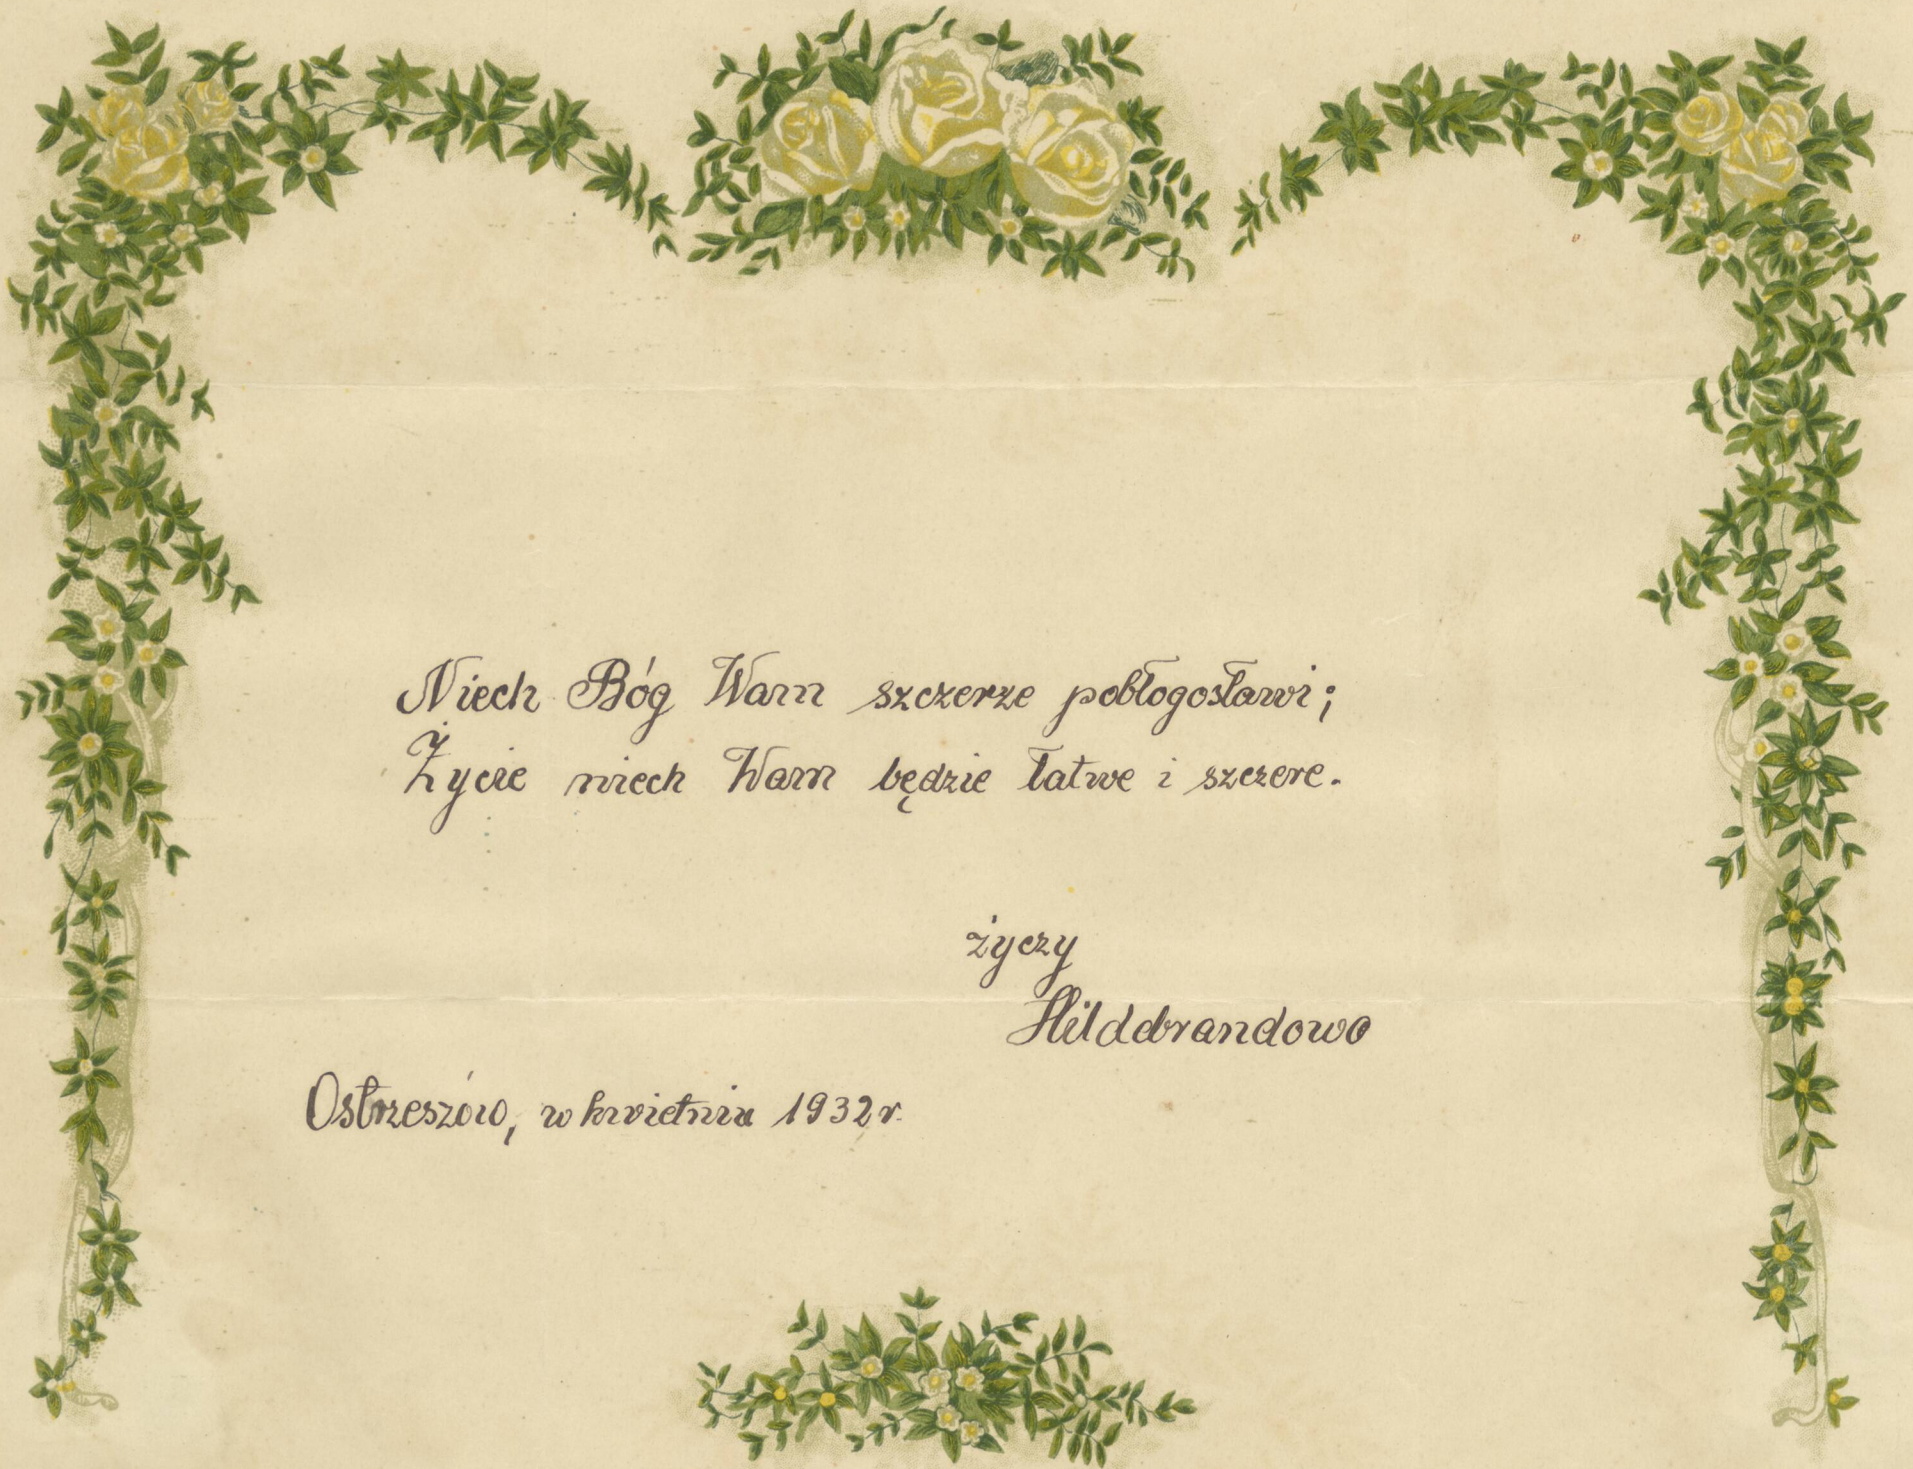 Niech Bóg Wam szczerze pobłogosławi;
Życie niech Wam będzie łatwe i szczere.
życzy
Hildebrandowo
Ostrzeszów, w kwietniu 1932 r.